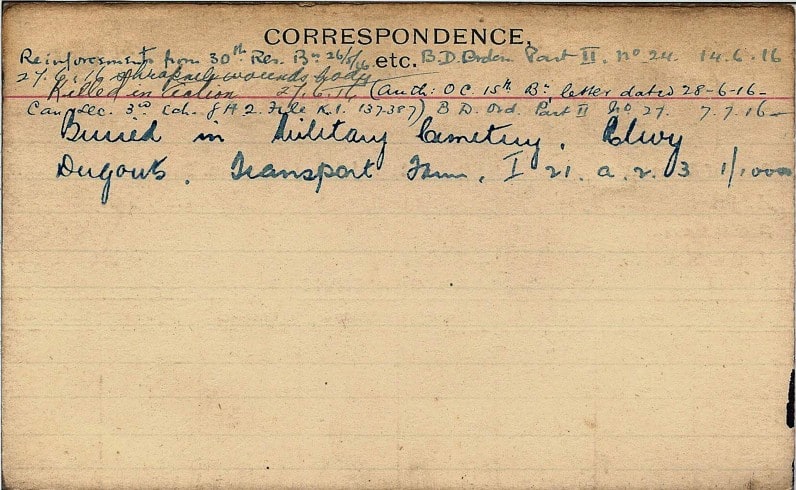 CORRESPONDENCE,
etc.
Reinforcements from 30th Res. Bn 26/5/16 B.D. Orders Part II. No 24. 14.6.16
27.6.16 Shrapnel wounds body
Killed in Action 27.6.16 (Auth: O.C. 15th Bn letter dated 28-6-16-
Can. Sec. 3rd Ech. G.H.Q. File K.1. 137-387) B.D. Ord. Part II No 27. 7.7.16-
Buried in Military Cemetery,
Dugouts, Transport Farm, I 21. a. 2. 3 1/10000